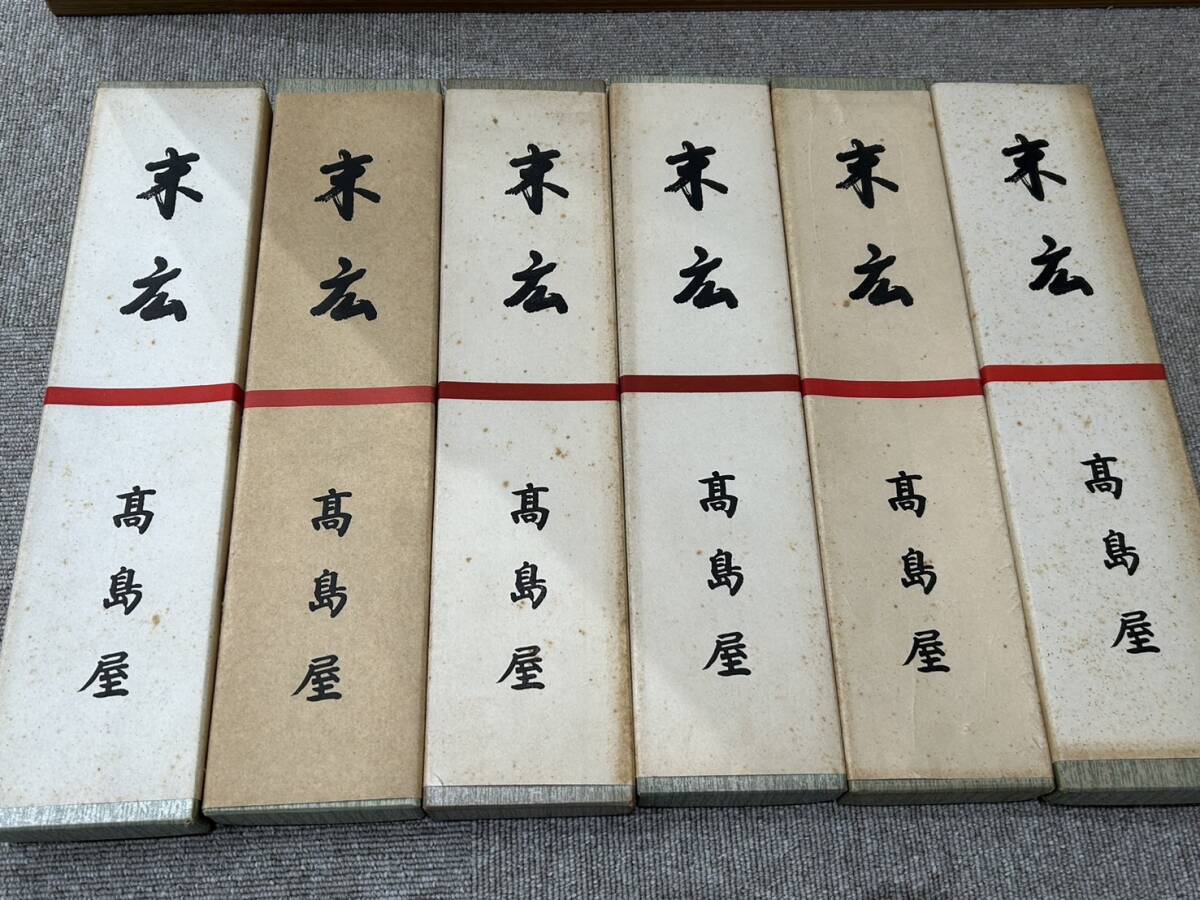 末広
髙島屋
末広
髙島屋
末広
髙島屋
末広
髙島屋
末広
髙島屋
末広
髙島屋